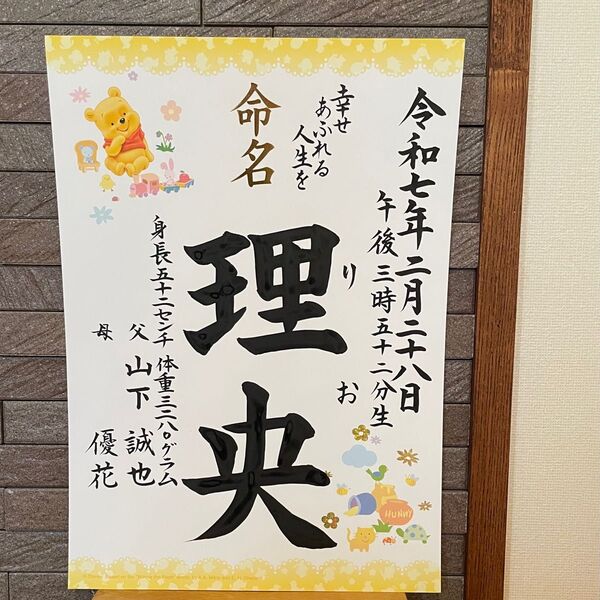 令和七年二月二十八日
午後三時五十二分生
幸せ
あふれる
人生を
命名
理央
りお
身長五十二センチ 体重三二八〇グラム
父 山下 誠也
母 優花
HUNNY